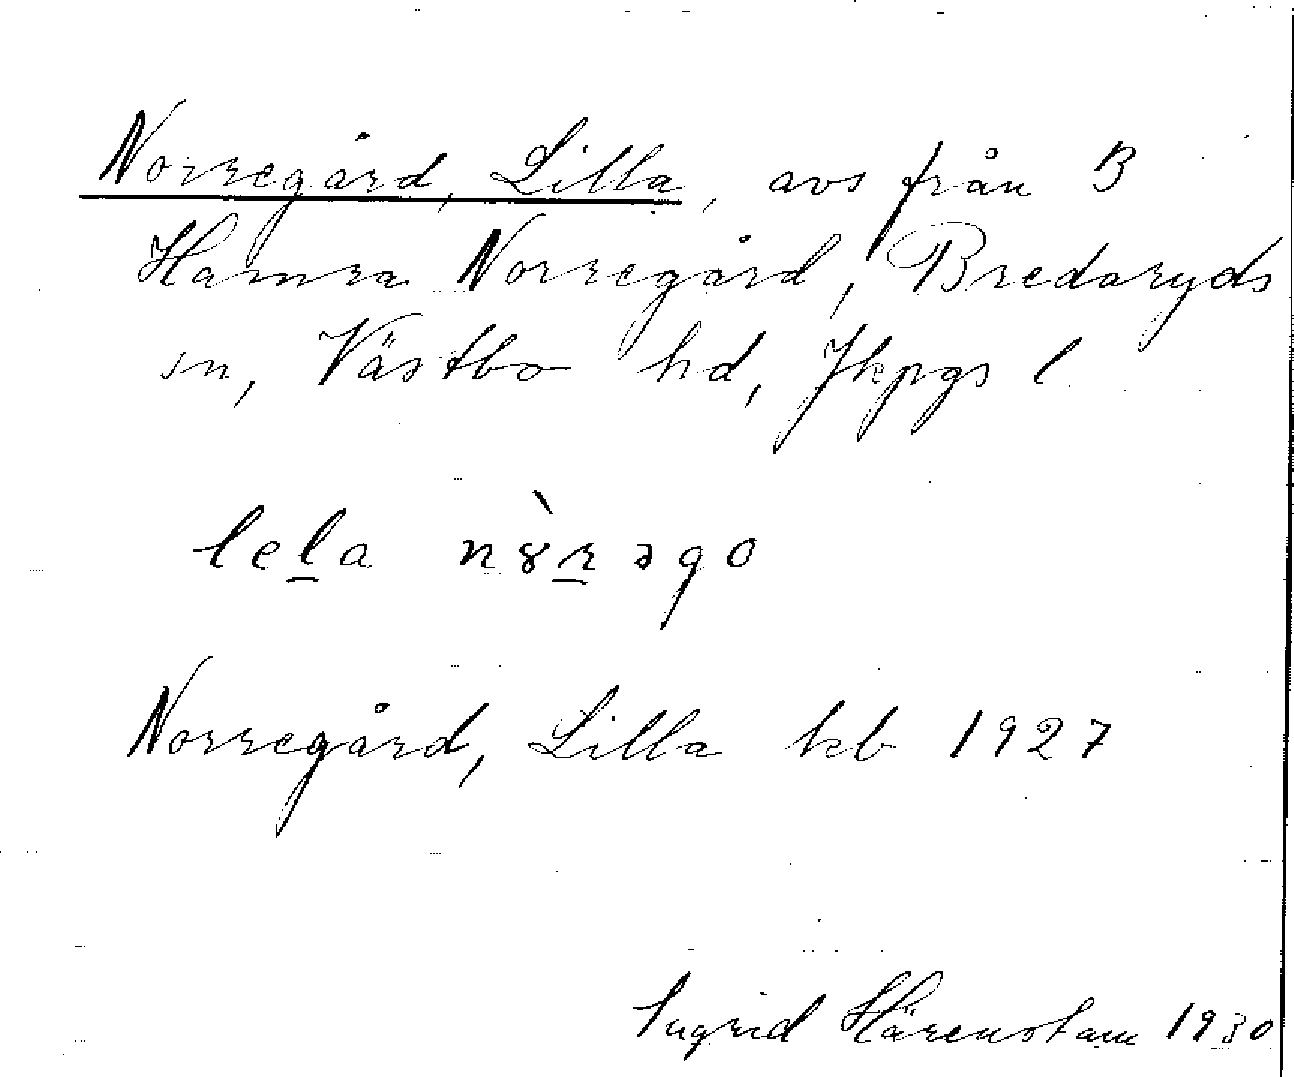 Norregård, Lilla, avs från B
Hamra Norregård, Bredaryds
sn, Västbo hd, Jkpgs l
lel̲a nȣ̀r̲əgo
Norregård, Lilla kb 1927
Ingrid Härenstam 1930